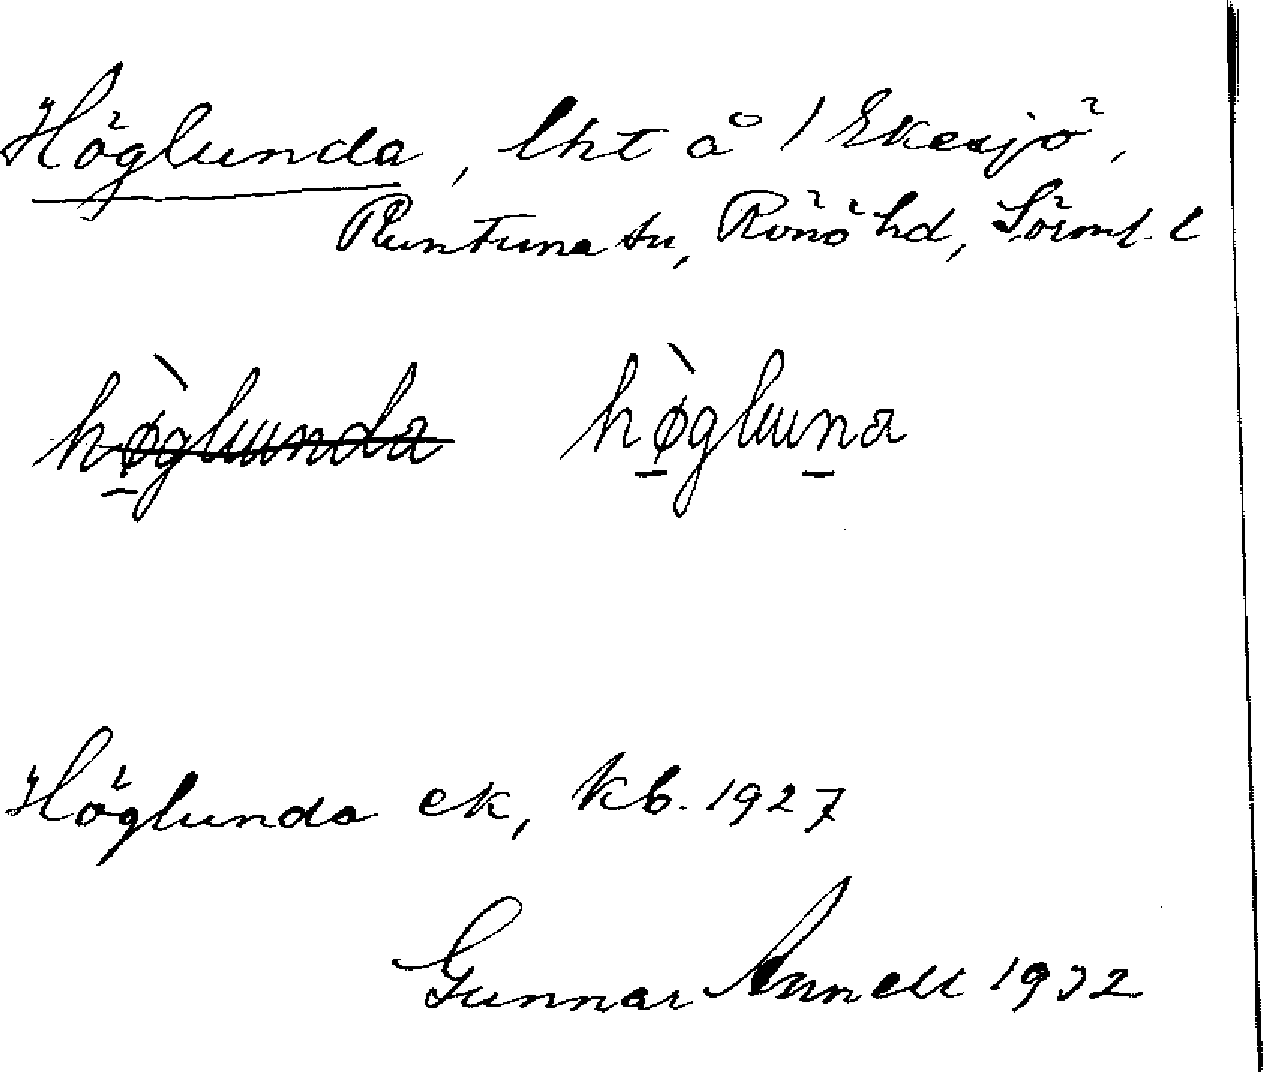 Höglunda, lht å 1 Ekesjö,
Runtuna sn, Rönö hd, Sörml. l
høglunda høgluna
Höglunda ek, kb. 1927
Gunnar Annell 1932